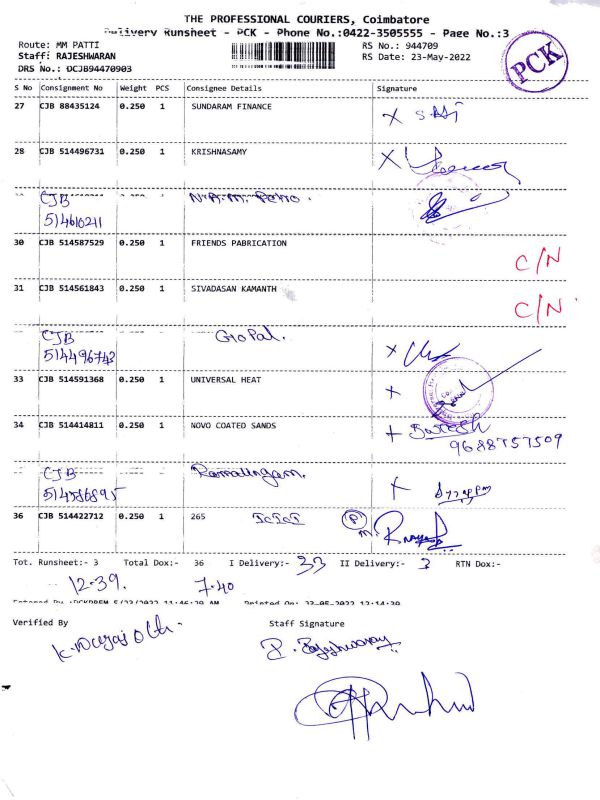 THE PROFESSIONAL COURIERS, Coimbatore
Delivery Runsheet - PCK - Phone No.:0422-3505555 - Page No.:3
Route: MM PATTI RS No.: 944709
Staff: RAJESHWARAN RS Date: 23-May-2022
DRS No.: DCJB94470903
PCK
S No Consignment No Weight PCS Consignee Details Signature
27 CJB 88435124 0.250 1 SUNDARAM FINANCE
28 CJB 514496731 0.250 1 KRISHNASAMY
CJB N.A.M. Petro.
514610211
30 CJB 514587529 0.250 1 FRIENDS PABRICATION C/N
31 CJB 514561843 0.250 1 SIVADASAN KAMANTH C/N
CJB GoPal.
514496743
33 CJB 514591368 0.250 1 UNIVERSAL HEAT
34 CJB 514414811 0.250 1 NOVO COATED SANDS
9688757509
CJB Ramalingam.
514586895
36 CJB 514422712 0.250 1 265 ICICI P
Tot. Runsheet:- 3 Total Dox:- 36 I Delivery:- 33 II Delivery:- 3 RTN Dox:-
12-39. 7-40
Entered By :PCKPREM 5/23/2022 11:46:29 AM Printed On: 23-05-2022 12:14:39
Verified By Staff Signature